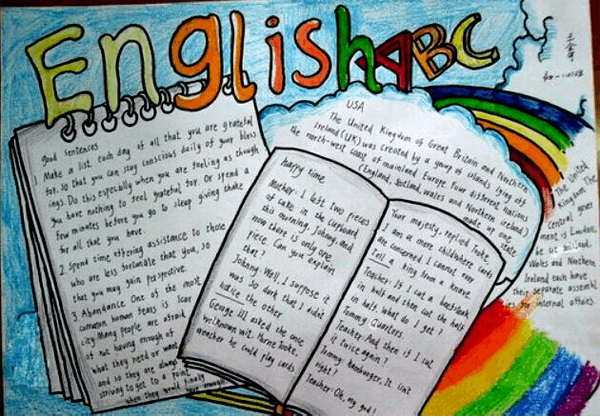 EnglishABC
Good sentences
1 Make a list each day of all that you are grateful
for. So that you can stay conscious daily of your bless
ings. Do this especially when you are feeling as though
you have nothing to feel grateful for. Or spend a
few minutes before you go to sleep giving thanks
for all that you have.
2. Spend time offering assistance to those
who are less fortunate than you, so
that you may gain perspective.
3. Abundance One of the most
common human fears is scar
city. Many people are afraid
of not having enough of
what they need or want
and so they are always
striving to get to a point
when they would finally
have enough
happy time
Mother: I left two pieces
of cake in the cupboard
this morning, Johnny, and
now there is only one
piece. Can you explain
that?
Johnny: Well, I suppose it
was so dark that I didn't
notice the other.
George III asked the once
well known wit. Horne Tooke,
weather he could play cards
Your majesty, replied Tooke,
I am so mere childwhere cards
are concerned I cannot even
tell a king from a knave.
Teacher: If I cut a beefsteak
in half and then cut the halfs
in half. What do I get?
Tommy: Quarters.
Teacher: And then if I cut
it twice again?
Tommy: Hamburger. It isn't
right?
Teacher: Oh, my god!
USA
The United Kingdom of Great Britain and Northern
Ireland (UK) was created by a group of islands lying off
the north-west coast of mainland Europe. Four different nations
(England, Scotland, Wales and Northern Ireland)
made up one
state
the United
Kingdom The
Central gover
ment is London,
Scotland,
Wales and Northern
Ireland each have
their separate assembl
ies for internal affairs.